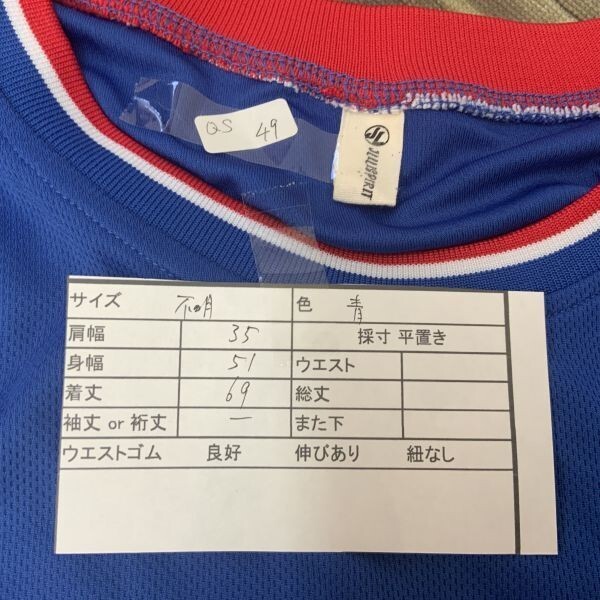 QS 49
JUUSPIRIT
サイズ 不明 色 青
肩幅 35 採寸 平置き
身幅 51 ウエスト
着丈 69 総丈
袖丈 or 裄丈 ー また下
ウエストゴム 良好 伸びあり 紐なし